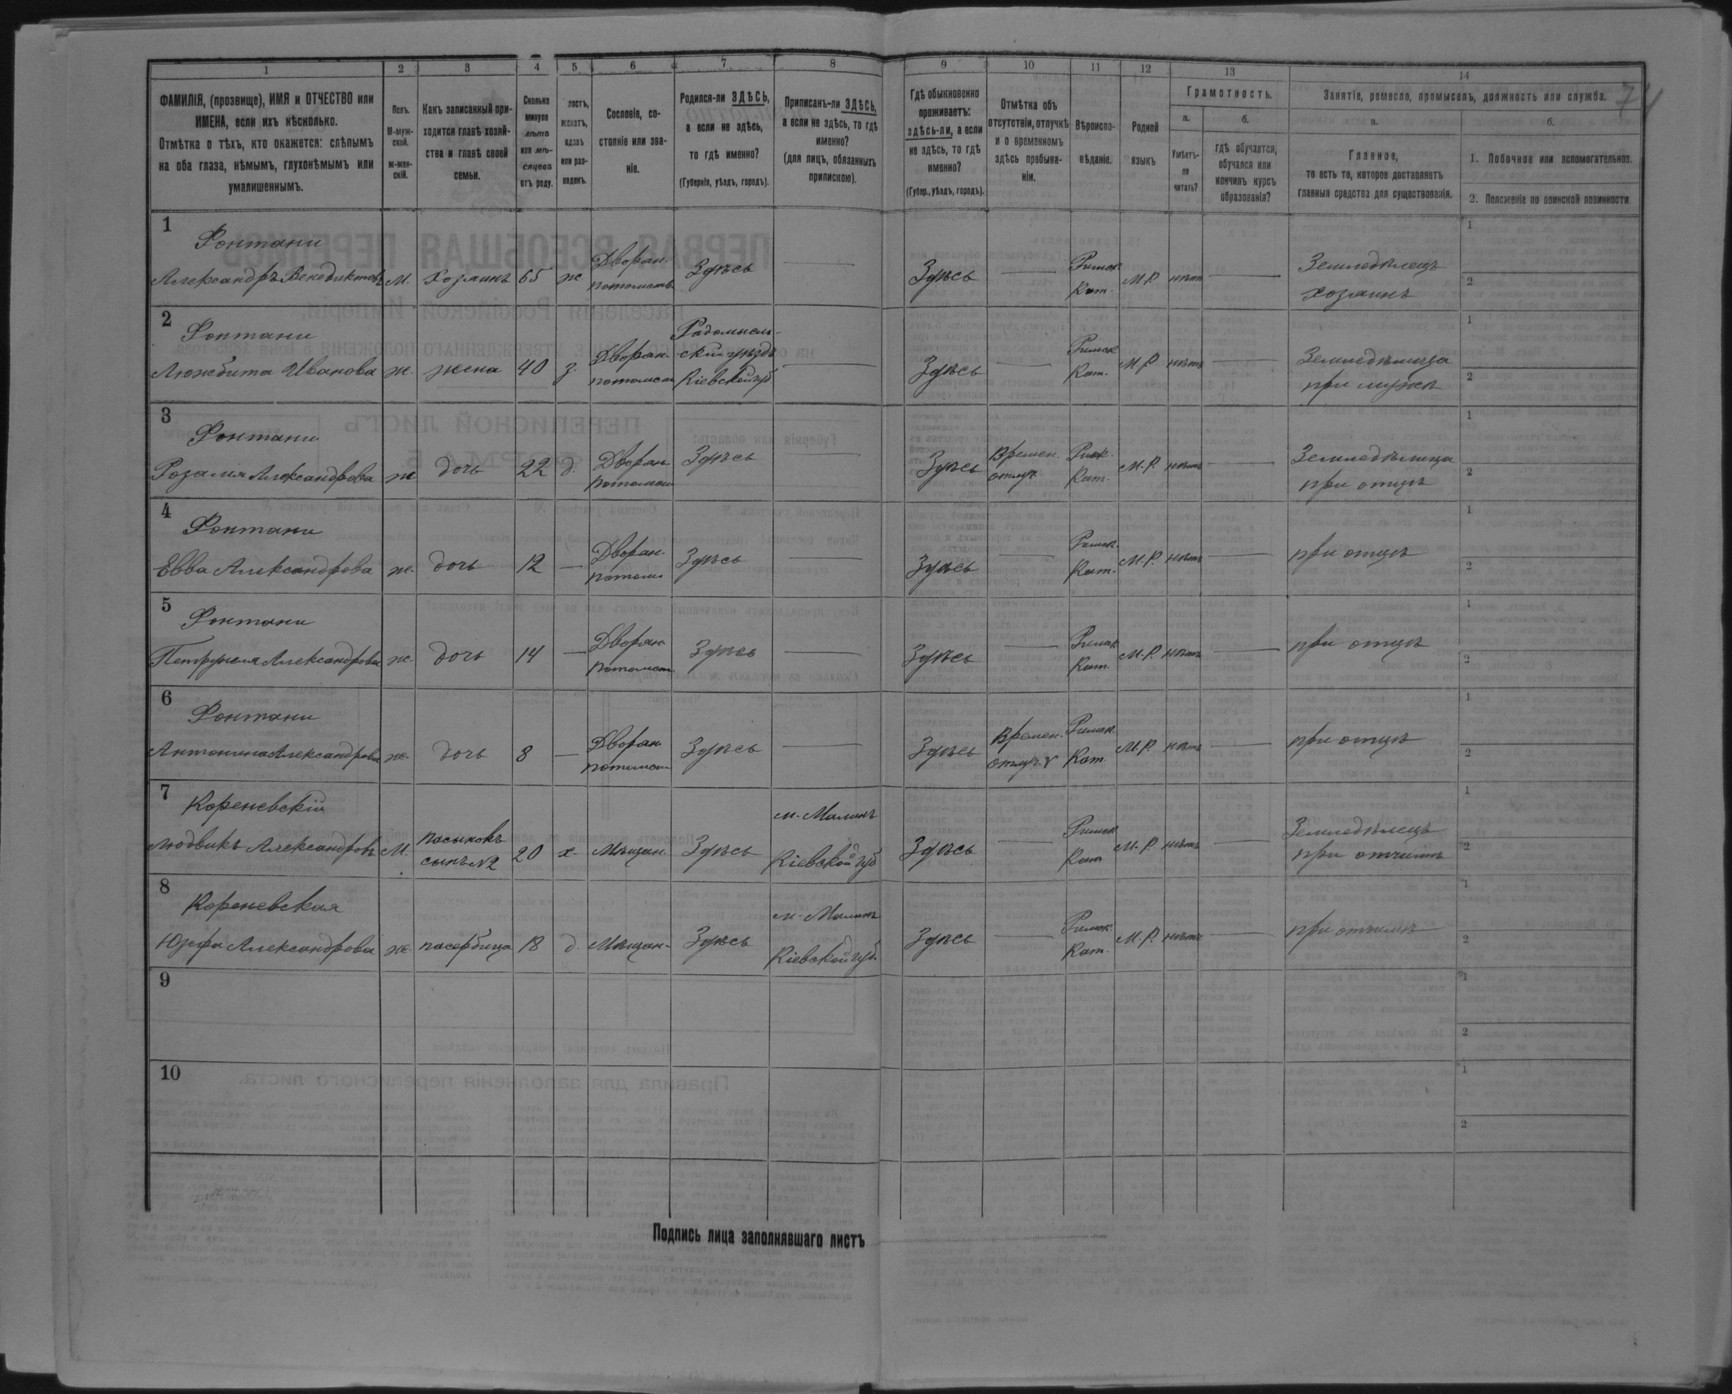 1 2 3 4 5 6 7 8 9 10 11 12 13 14
74
ФАМИЛІЯ, (прозвище), ИМЯ и ОТЧЕСТВО или
ИМЕНА, если ихъ нѣсколько.
Отмѣтка о тѣхъ, кто окажется: слѣпымъ
на оба глаза, нѣмымъ, глухонѣмымъ или
умалишеннымъ.
Полъ.
М-муж-
ской.
ж-жен-
скій.
Какъ записанный при-
ходится главѣ хозяй-
ства и главѣ своей
семьи.
Сколько
минуло
лѣтъ
или мѣ-
сяцевъ
отъ роду.
холостъ,
женатъ,
вдовъ
или раз-
веденъ.
Сословіе, со-
стояніе или зва-
ніе.
Родился-ли ЗДѢСЬ,
а если не здѣсь,
то гдѣ именно?
(Губернія, уѣздъ, городъ).
Приписанъ-ли ЗДѢСЬ,
а если не здѣсь, то гдѣ
именно?
(для лицъ, обязанныхъ
припискою).
Гдѣ обыкновенно
проживаетъ:
здѣсь-ли, а если
не здѣсь, то гдѣ
именно?
(Губер., уѣздъ, городъ).
Отмѣтка объ
отсутствіи, отлучкѣ
и о временномъ
здѣсь пребыва-
ніи.
Вѣроиспо-
вѣданіе.
Родной
языкъ.
Грамотность.
а.
Умѣетъ-
ли
читать?
б.
гдѣ обучается,
обучался или
кончилъ курсъ
образованія?
Занятіе, ремесло, промыселъ, должность или служба.
а.
Главное,
то есть то, которое доставляетъ
главныя средства для существованія.
б.
1. Побочное или вспомогательное.
2. Положеніе по воинской повинности.
1
Фонтани
Александръ Венедиктовъ М. Хозяинъ 65 ж Дворян. потомств. Здѣсь — Здѣсь Римск. Кат. М.Р. нѣтъ — Земледѣлецъ хозяинъ
1
2
2
Фонтани
Люжбита Иванова ж. жена 40 з. Дворян. потомст. Радомысль-скій уѣздъ Кіевской губ — Здѣсь — Римск. Кат. М.Р. нѣтъ — Земледѣлица при мужѣ
1
2
3
Фонтани
Розалия Александрова ж дочь 22 д. Дворян. потомст. Здѣсь Здѣсь Времен. отлуч. Римск. Кат. М.Р. нѣтъ — Земледѣлица при отцѣ
1
2
4
Фонтани
Евва Александрова ж. дочь 12 — Дворян. потомст. Здѣсь — Здѣсь — Римск. Кат. М.Р. нѣтъ — при отцѣ
1
2
5
Фонтани
Петрунеля Александрова ж. дочь 14 — Дворян. потомст. Здѣсь — Здѣсь — Римск. Кат. М.Р. нѣтъ — при отцѣ
1
2
6
Фонтани
Антонина Александрова ж. дочь 8 — Дворян. потомст. Здѣсь — Здѣсь Времен. отлуч. Римск. Кат. М.Р. нѣтъ — при отцѣ
1
2
7
Кореневскій
Людвикъ Александровъ М. пасынокъ сынъ №2 20 х. Мѣщан. Здѣсь м. Малинъ Кіевской губ Здѣсь — Римск. Кат. М.Р. нѣтъ — Земледѣлецъ при отчимѣ
1
2
8
Кореневская
Юзефа Александрова ж. пасербица 18 д. Мѣщан. Здѣсь м. Малинъ Кіевской губ. Здѣсь — Римск. Кат. М.Р. нѣтъ — при отчимѣ
1
2
9
1
2
10
1
2
Подпись лица заполнявшаго листъ